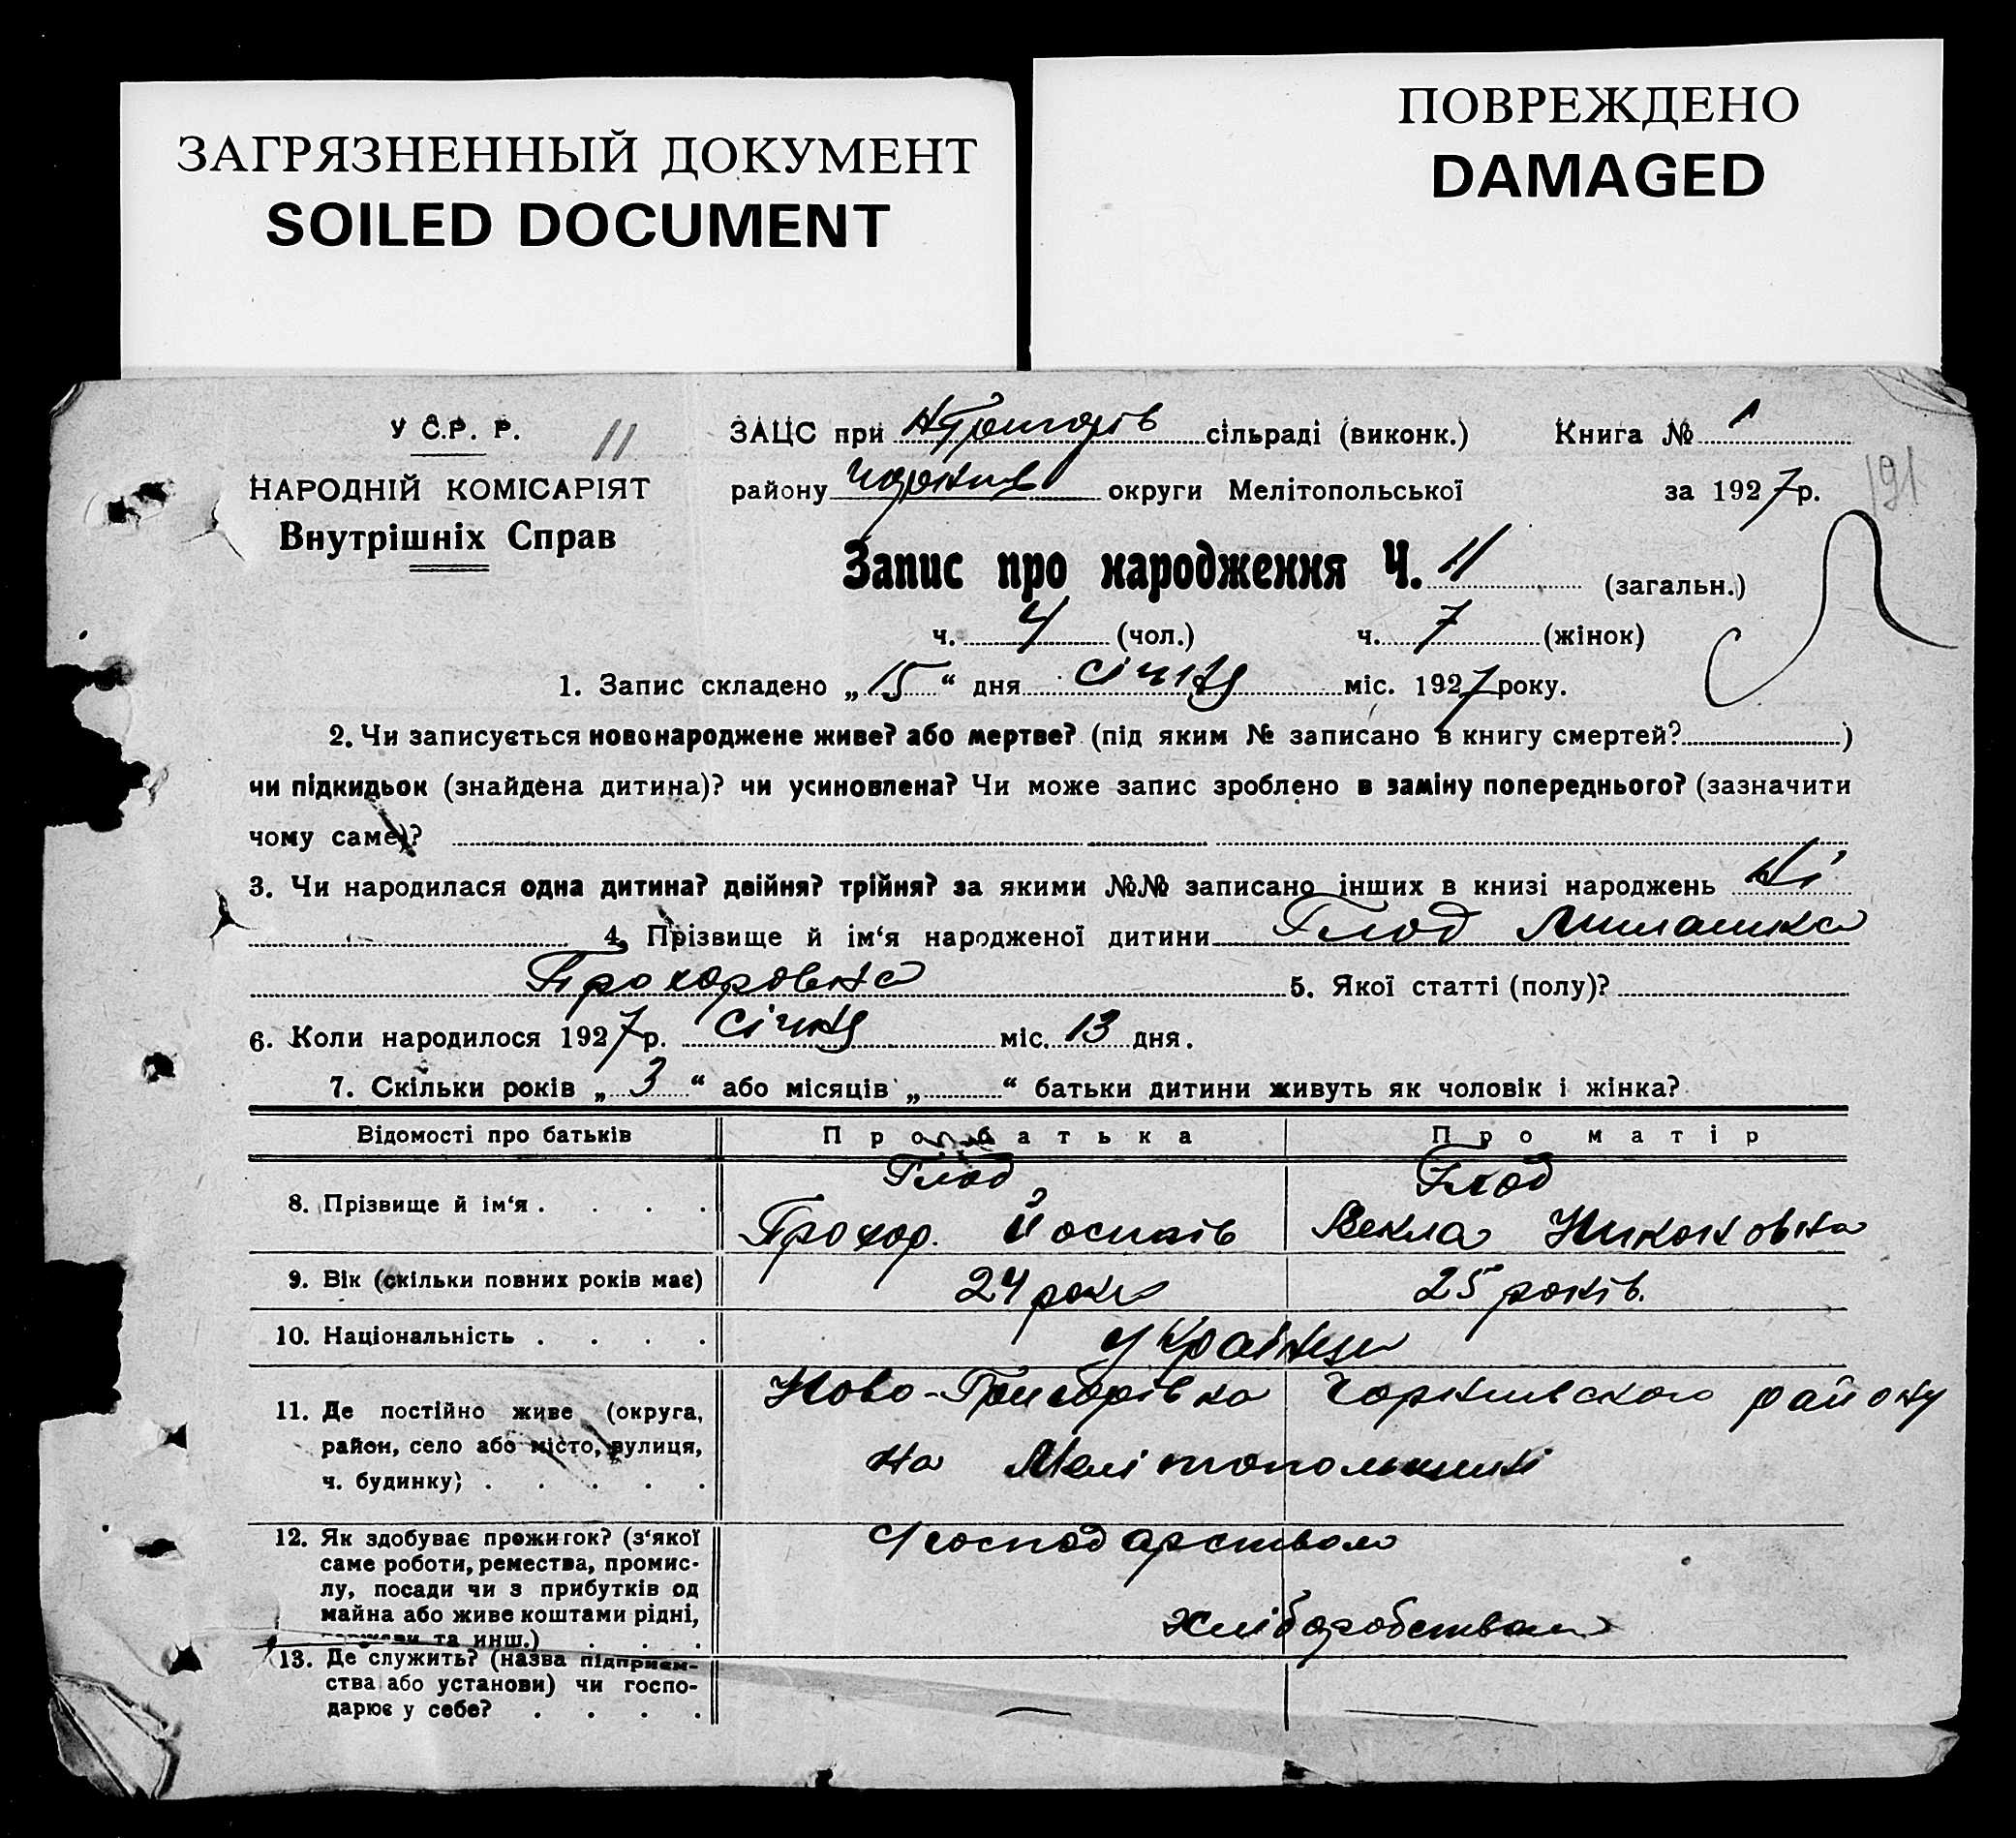 ЗАГРЯЗНЕННЫЙ ДОКУМЕНТ
SOILED DOCUMENT
ПОВРЕЖДЕНО
DAMAGED
У С.Р. Р.
11
ЗАЦС при Н Григорів сільраді (виконк.) Книга № 1
НАРОДНІЙ КОМІСАРІЯТ
району округи Мелітопольської за 1927 р.
191
Внутрішніх Справ
Запис про народження Ч. 11 (загальн.)
ч. 4 (чол.) ч. 7 (жінок)
1. Запис складено „15“ дня січня міс. 1927 року.
2. Чи записується новонароджене живе? або мертве? (під яким № записано в книгу смертей? )
чи підкидьок (знайдена дитина)? чи усиновлена? Чи може запис зроблено в заміну попереднього? (зазначити
чому саме)?
3. Чи народилася одна дитина? двійня? трійня? за якими №№ записано інших в книзі народжень Ні
4. Прізвище й ім‘я народженої дитини Глод
Прохоровна 5. Якої статті (полу)?
6. Коли народилося 1927 р. січня міс. 13 дня.
7. Скільки років „ 3 “ або місяців „ “ батьки дитини живуть як чоловік і жінка?
Відомості про батьків Про батька Про матір
Глод Глод
8. Прізвище й ім‘я . . . .
Прохор. Йосипів Векла Никоновна
9. Вік (скільки повних років має) 24 роки 25 років.
10. Національність . . . . українци
11. Де постійно живе (округа,
район, село або місто, вулиця,
ч. будинку) . . . . .
Ново-Григорівка району
на Мелітопольщині
12. Як здобуває прожиток? (з‘якої
саме роботи, ремества, промис-
лу, посади чи з прибутків од
майна або живе коштами рідні,
та инш.) . . .
господарством
хліборобством
13. Де служить? (назва підприєм-
ства або установи) чи госпо-
дарює у себе? . . . .